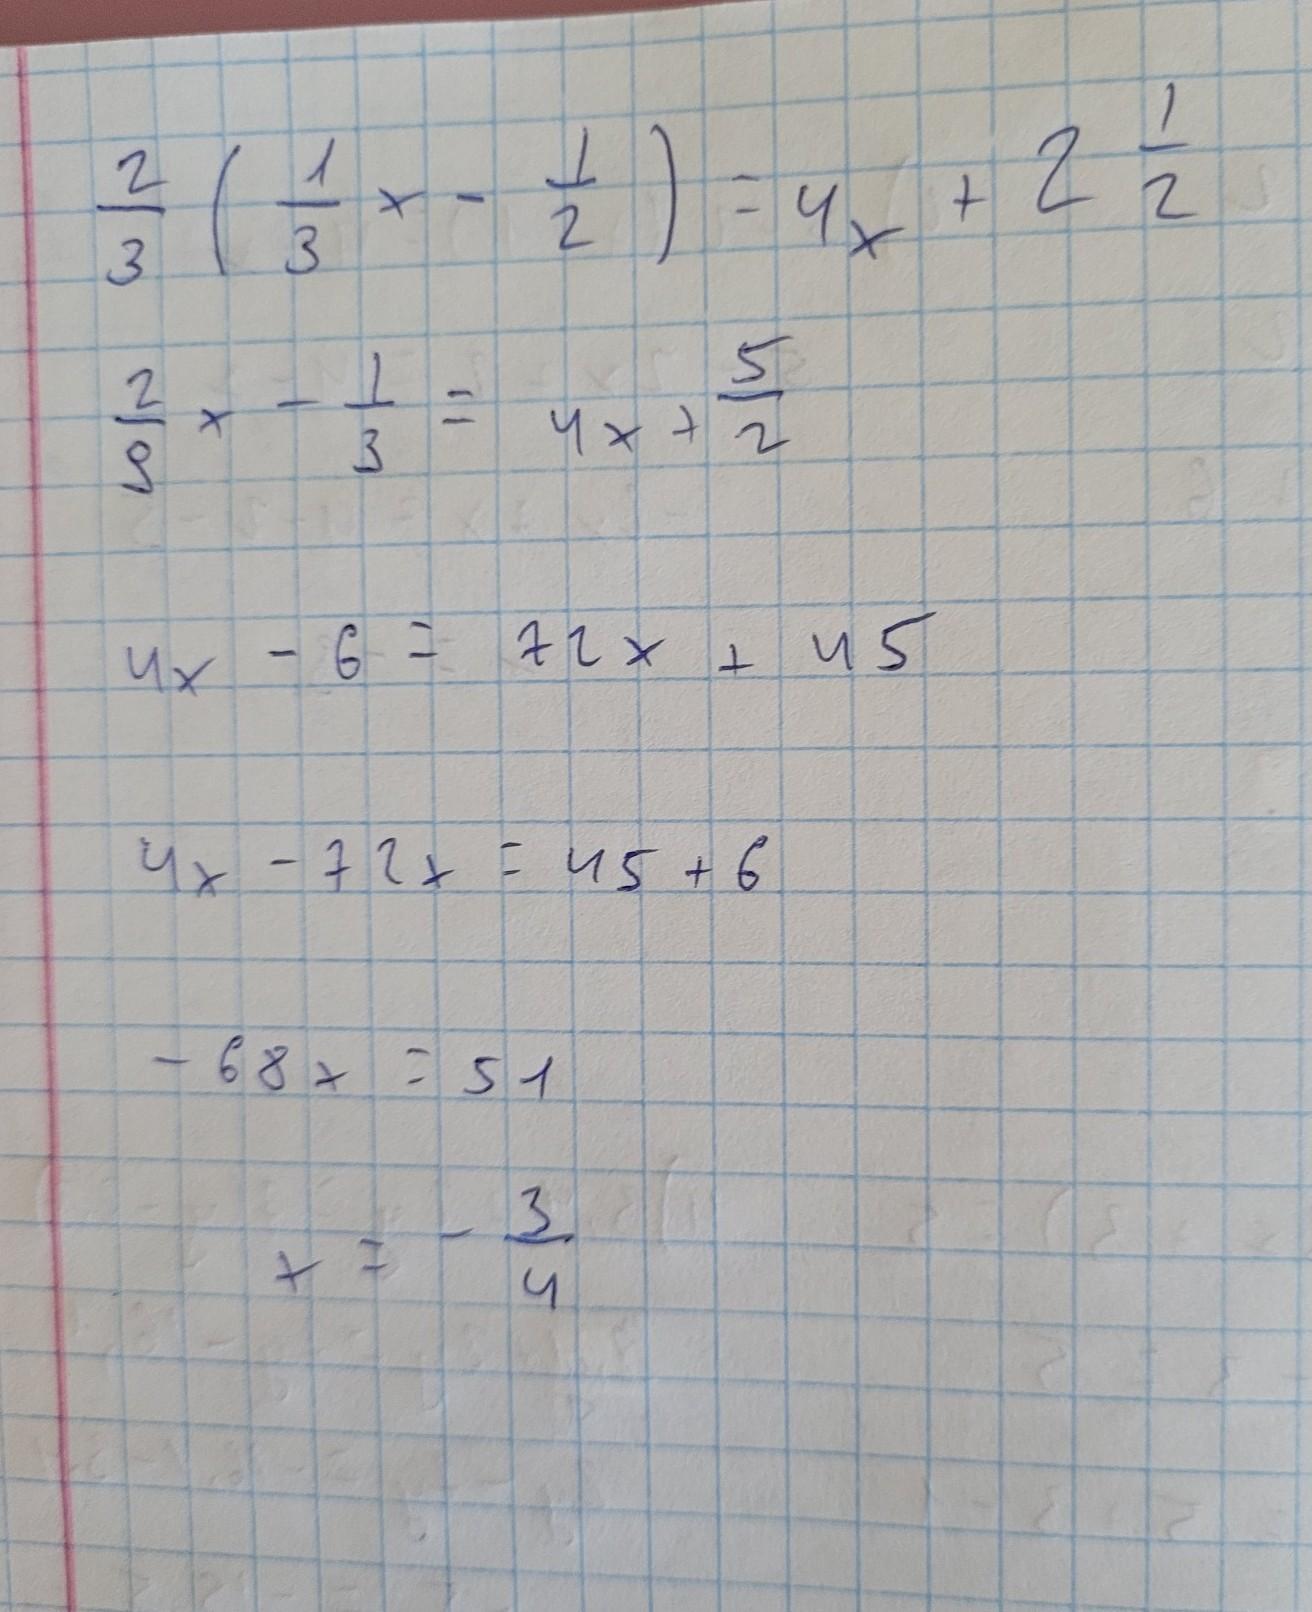 2/3 ( 1/3 x - 1/2 ) = 4x + 2 1/2
2/9 x - 1/3 = 4x + 5/2
4x - 6 = 72x + 45
4x - 72x = 45 + 6
- 68x = 51
x = - 3/4